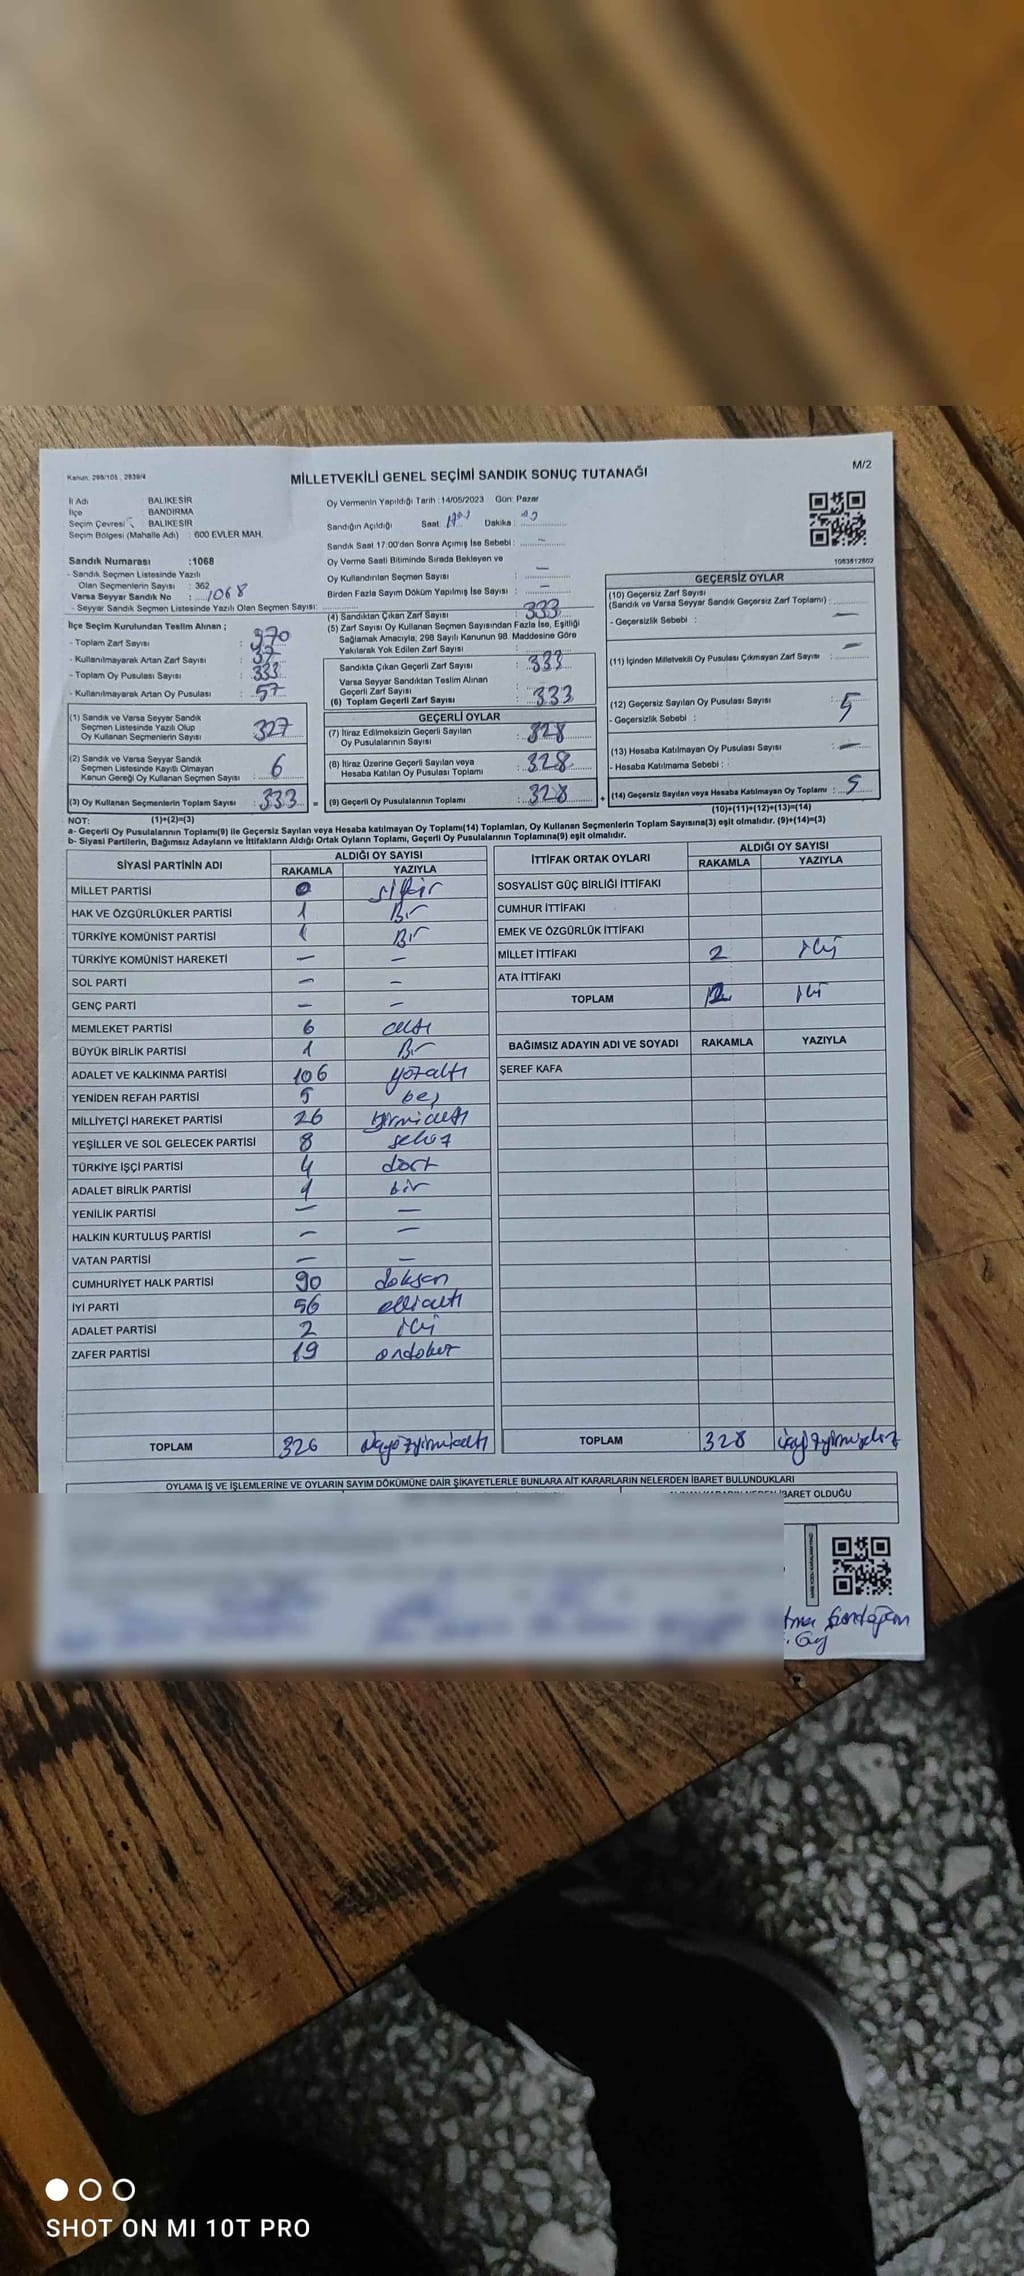 Kanun: 298/105 , 2839/4
M/2
MİLLETVEKİLİ GENEL SEÇİMİ SANDIK SONUÇ TUTANAĞI
İl Adı : BALIKESİR
İlçe : BANDIRMA
Seçim Çevresi : BALIKESİR
Seçim Bölgesi (Mahalle Adı) : 600 EVLER MAH.
Oy Vermenin Yapıldığı Tarih : 14/05/2023 Gün: Pazar
Sandığın Açıldığı Saat: Dakika :
Sandık Saat 17:00'dan Sonra Açımış İse Sebebi : -
Oy Verme Saati Bitiminde Sırada Bekleyen ve
Oy Kullandırılan Seçmen Sayısı : -
Birden Fazla Sayım Döküm Yapılmış İse Sayısı : -
1083812602
Sandık Numarası :1068
- Sandık Seçmen Listesinde Yazılı
Olan Seçmenlerin Sayısı : 362
Varsa Seyyar Sandık No : 1068
- Seyyar Sandık Seçmen Listesinde Yazılı Olan Seçmen Sayısı:
İlçe Seçim Kurulundan Teslim Alınan ;
- Toplam Zarf Sayısı : 370
- Kullanılmayarak Artan Zarf Sayısı : 37
- Toplam Oy Pusulası Sayısı : 333
- Kullanılmayarak Artan Oy Pusulası : 57
(1) Sandık ve Varsa Seyyar Sandık
Seçmen Listesinde Yazılı Olup
Oy Kullanan Seçmenlerin Sayısı : 327
(2) Sandık ve Varsa Seyyar Sandık
Seçmen Listesinde Kayıtlı Olmayan
Kanun Gereği Oy Kullanan Seçmen Sayısı : 6
(3) Oy Kullanan Seçmenlerin Toplam Sayısı : 333 =
(4) Sandıktan Çıkan Zarf Sayısı : 333
(5) Zarf Sayısı Oy Kullanan Seçmen Sayısından Fazla İse, Eşitliği
Sağlamak Amacıyla; 298 Sayılı Kanunun 98. Maddesine Göre
Yakılarak Yok Edilen Zarf Sayısı :
Sandıkta Çıkan Geçerli Zarf Sayısı : 333
Varsa Seyyar Sandıktan Teslim Alınan
Geçerli Zarf Sayısı :
(6) Toplam Geçerli Zarf Sayısı : 333
GEÇERLİ OYLAR
(7) İtiraz Edilmeksizin Geçerli Sayılan
Oy Pusulalarının Sayısı : 328
(8) İtiraz Üzerine Geçerli Sayılan veya
Hesaba Katılan Oy Pusulası Toplamı : 328
(9) Geçerli Oy Pusulalarının Toplamı : 328 +
GEÇERSİZ OYLAR
(10) Geçersiz Zarf Sayısı
(Sandık ve Varsa Seyyar Sandık Geçersiz Zarf Toplamı) :
- Geçersizlik Sebebi : -
(11) İçinden Milletvekili Oy Pusulası Çıkmayan Zarf Sayısı : -
(12) Geçersiz Sayılan Oy Pusulası Sayısı : 5
- Geçersizlik Sebebi :
(13) Hesaba Katılmayan Oy Pusulası Sayısı : -
- Hesaba Katılmama Sebebi :
(14) Geçersiz Sayılan veya Hesaba Katılmayan Oy Toplamı : 5
NOT: (1)+(2)=(3)
(10)+(11)+(12)+(13)=(14)
a- Geçerli Oy Pusulalarının Toplamı(9) ile Geçersiz Sayılan veya Hesaba katılmayan Oy Toplamı(14) Toplamları, Oy Kullanan Seçmenlerin Toplam Sayısına(3) eşit olmalıdır. (9)+(14)=(3)
b- Siyasi Partilerin, Bağımsız Adayların ve İttifakların Aldığı Ortak Oyların Toplamı, Geçerli Oy Pusulalarının Toplamına(9) eşit olmalıdır.
SİYASİ PARTİNİN ADI ALDIĞI OY SAYISI
RAKAMLA YAZIYLA
MİLLET PARTİSİ 0 sıfır
HAK VE ÖZGÜRLÜKLER PARTİSİ 1 Bir
TÜRKİYE KOMÜNİST PARTİSİ 1 Bir
TÜRKİYE KOMÜNİST HAREKETİ - -
SOL PARTİ - -
GENÇ PARTİ - -
MEMLEKET PARTİSİ 6 altı
BÜYÜK BİRLİK PARTİSİ 1 Bir
ADALET VE KALKINMA PARTİSİ 106 yüzaltı
YENİDEN REFAH PARTİSİ 5 beş
MİLLİYETÇİ HAREKET PARTİSİ 26 yirmialtı
YEŞİLLER VE SOL GELECEK PARTİSİ 8 sekiz
TÜRKİYE İŞÇİ PARTİSİ 4 dört
ADALET BİRLİK PARTİSİ 1 bir
YENİLİK PARTİSİ - -
HALKIN KURTULUŞ PARTİSİ - -
VATAN PARTİSİ - -
CUMHURİYET HALK PARTİSİ 90 doksan
İYİ PARTİ 56 elli altı
ADALET PARTİSİ 2 iki
ZAFER PARTİSİ 19 ondokuz
TOPLAM 326 üçyüzyirmialtı
İTTİFAK ORTAK OYLARI ALDIĞI OY SAYISI
RAKAMLA YAZIYLA
SOSYALİST GÜÇ BİRLİĞİ İTTİFAKI
CUMHUR İTTİFAKI
EMEK VE ÖZGÜRLÜK İTTİFAKI
MİLLET İTTİFAKI 2 iki
ATA İTTİFAKI
TOPLAM 2 iki
BAĞIMSIZ ADAYIN ADI VE SOYADI RAKAMLA YAZIYLA
ŞEREF KAFA
TOPLAM 328 üçyüzyirmisekiz
OYLAMA İŞ VE İŞLEMLERİNE VE OYLARIN SAYIM DÖKÜMÜNE DAİR ŞİKAYETLERLE BUNLARA AİT KARARLARIN NELERDEN İBARET BULUNDUKLARI
İBARET OLDUĞU
SHOT ON MI 10T PRO